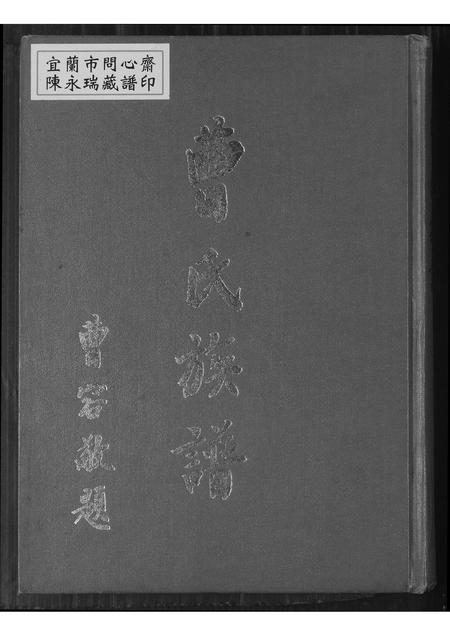 宜蘭市問心齋
陳永瑞藏譜印
曹氏族譜
曹容敬題